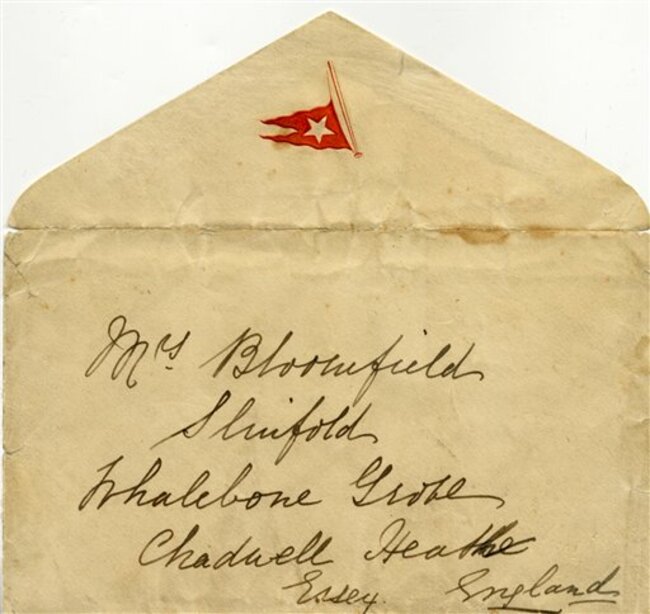 Mrs Bloomfield
Slinfold
Whalebone Grove
Chadwell Heath
Essex. England